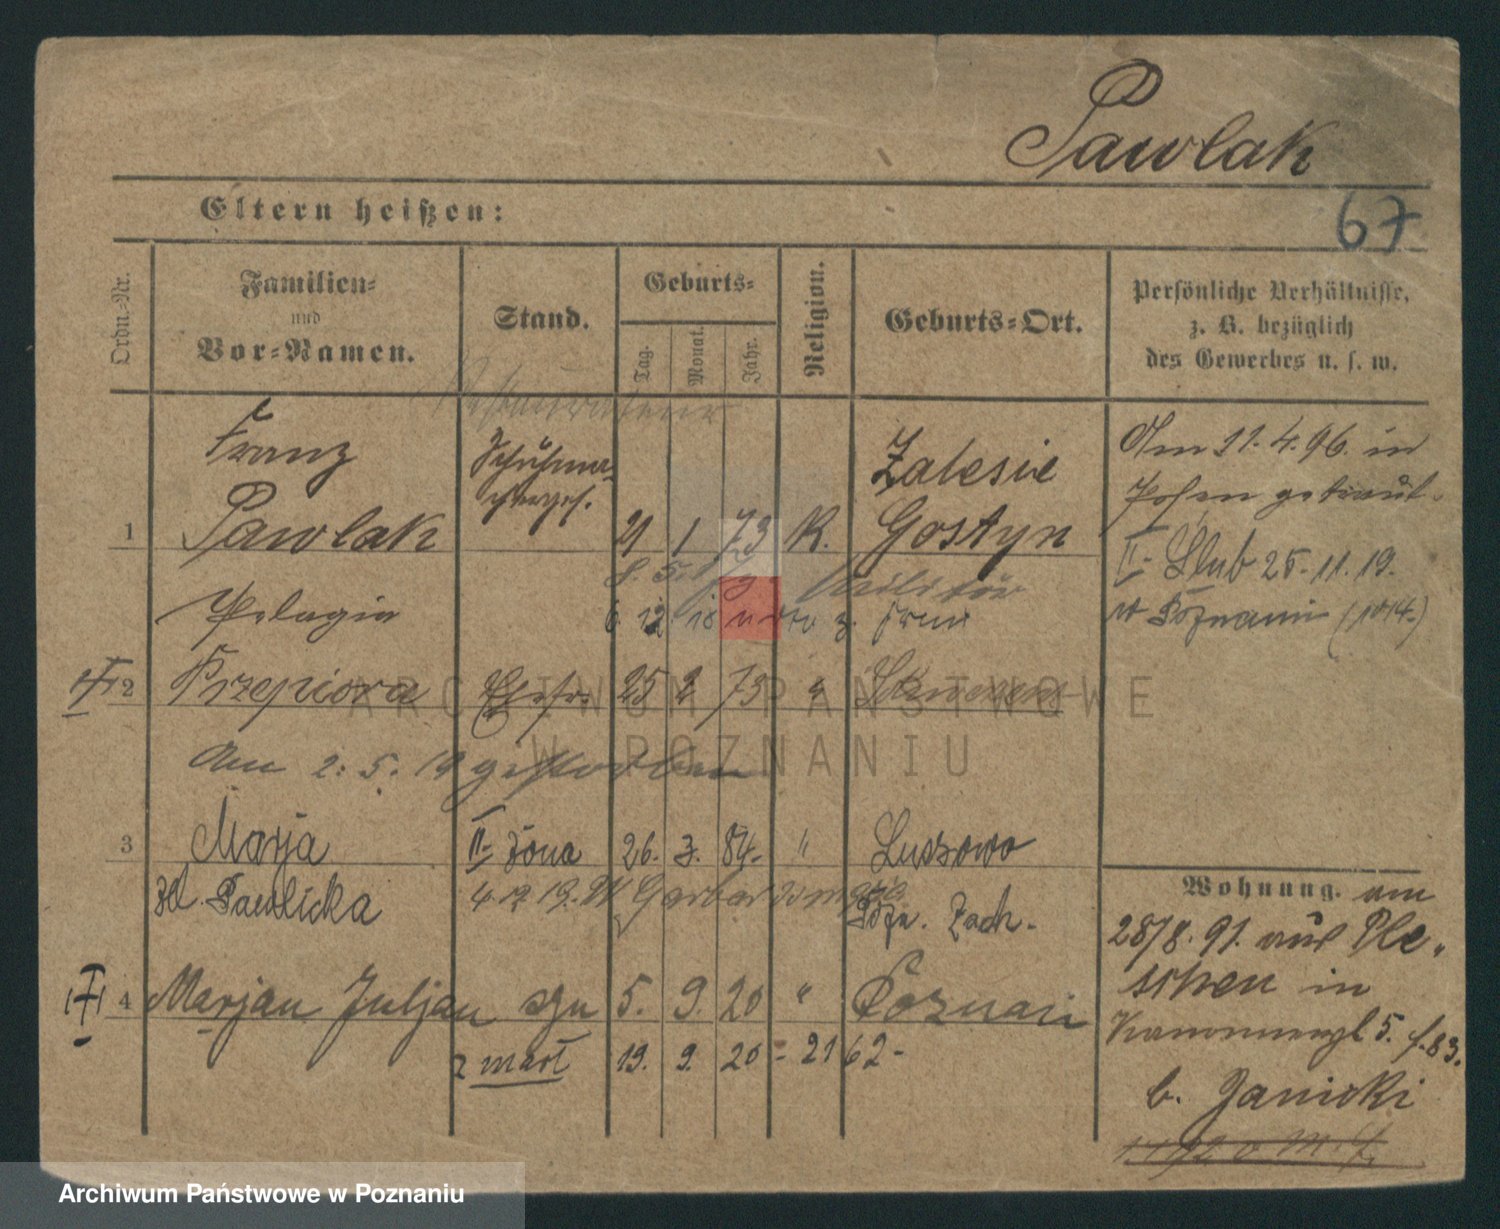 Pawlak
Eltern heißen:
67
Ordn.-Nr.
Familien-
und
Vor-Namen.
Stand.
Geburts-
Tag.
Monat.
Jahr.
Religion.
Geburts-Ort.
Persönliche Verhältnisse,
z. B. bezüglich
des Gewerbes u. s. w.
Restaurateur
Franz
Schuhma-
Zalesie
Am 11.4.96. in
Posen getraut.
1 Pawlak 1 73 K. Gostyn
II- Ślub 25.11.19.
Militär
w Poznaniu (1014.)
Pelagia
6 12 18
2 Przepiora Ehefr. 25 2 73 "
Am 2.5.19 gestorben
3 Marja II- żona 26. 3. 84. " Lussowo
zd. Pawlicka
Pozn. Zach.
4 Marjan Juljan syn 5. 9. 20 " Poznań
zmarł 19. 9. 20 - 2162-
Wohnung. am
28/8.91. aus Ple-
schen in
5. f.83.
b. Janicki
ARCHIWUM PAŃSTWOWE
W POZNANIU
Archiwum Państwowe w Poznaniu